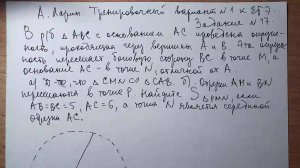 А. Ларин. Тренировочный вариант N1 к ЕГЭ.
Задание N17.
В р/б △ ABC с основанием AC проведена окруж-
ность, проходящая через вершины A и B. Эта окруж-
ность пересекает боковую сторону BC в точке M, а
основание AC - в точке N, отличной от A.
а) что △ CMN ∾ △ CAB. б) Отрезки AM и BN
пересекаются в точке P. Найдите S△PMN, если
AB=BC=5, AC=6, а точка N является серединой
отрезка AC.